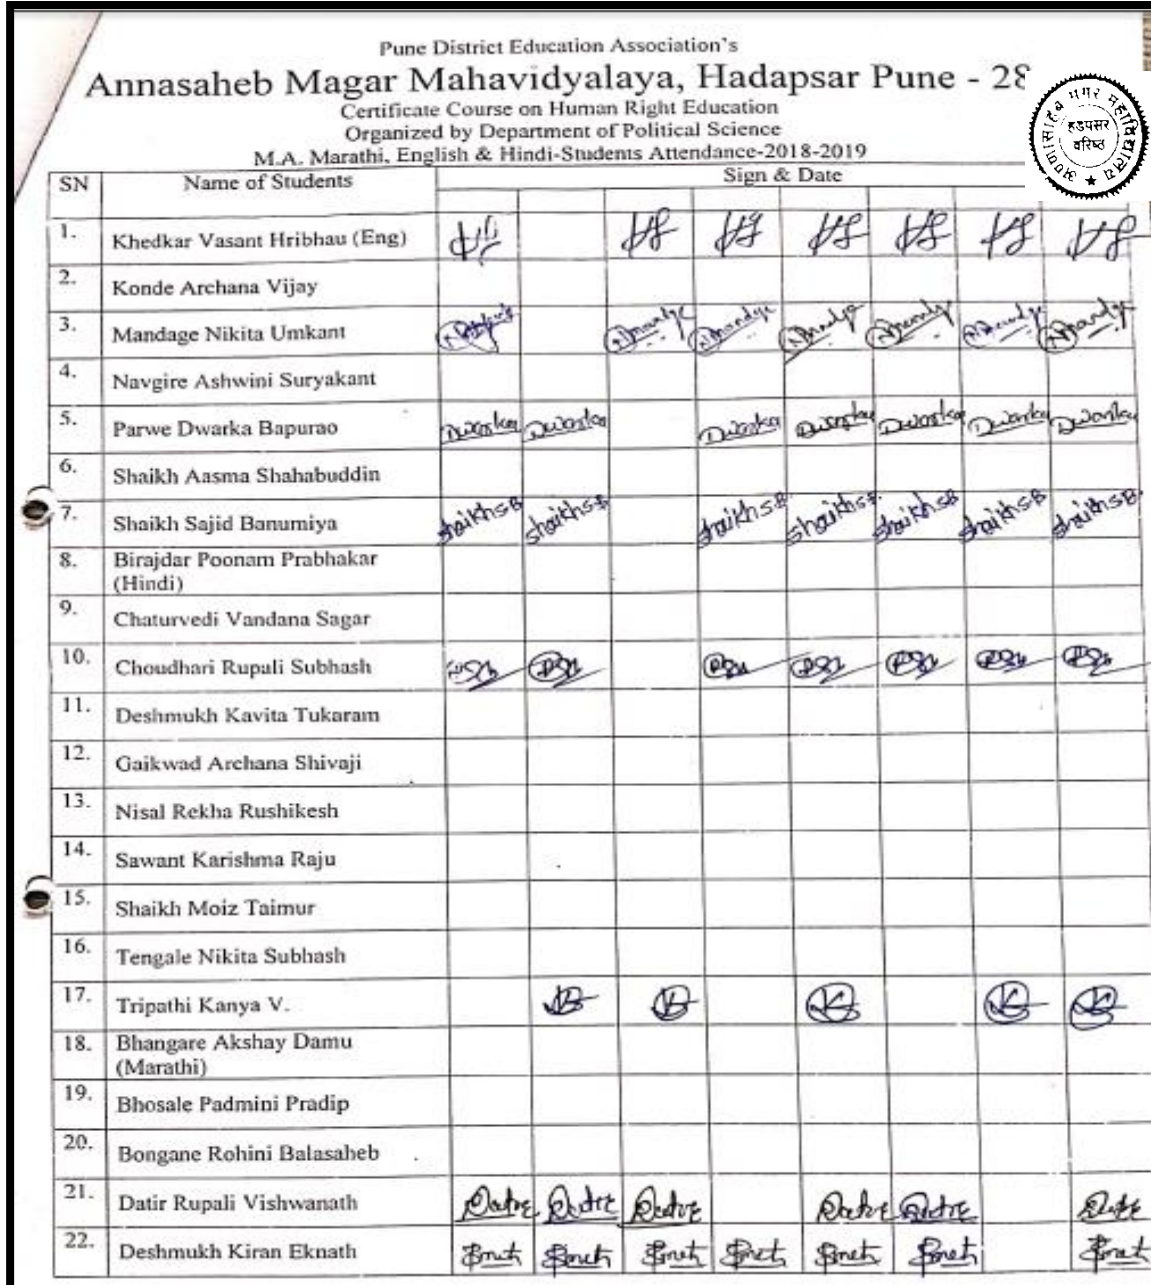 Pune District Education Association's
Annasaheb Magar Mahavidyalaya, Hadapsar Pune - 28
Certificate Course on Human Right Education
Organized by Department of Political Science
M.A. Marathi, English & Hindi-Students Attendance-2018-2019
हडपसर
वरिष्ठ
SN Name of Students Sign & Date
1. Khedkar Vasant Hribhau (Eng)
2. Konde Archana Vijay
3. Mandage Nikita Umkant
4. Navgire Ashwini Suryakant
5. Parwe Dwarka Bapurao Dwarka Dwarka Dwarka Dwarka Dwarka Dwarka Dwarka
6. Shaikh Aasma Shahabuddin
7. Shaikh Sajid Banumiya Shaikh S.B Shaikh S.B Shaikh S.B. Shaikh S.B. Shaikh S.B Shaikh S.B Shaikh S.B.
8. Birajdar Poonam Prabhakar
(Hindi)
9. Chaturvedi Vandana Sagar
10. Choudhari Rupali Subhash
11. Deshmukh Kavita Tukaram
12. Gaikwad Archana Shivaji
13. Nisal Rekha Rushikesh
14. Sawant Karishma Raju
15. Shaikh Moiz Taimur
16. Tengale Nikita Subhash
17. Tripathi Kanya V.
18. Bhangare Akshay Damu
(Marathi)
19. Bhosale Padmini Pradip
20. Bongane Rohini Balasaheb
21. Datir Rupali Vishwanath
22. Deshmukh Kiran Eknath